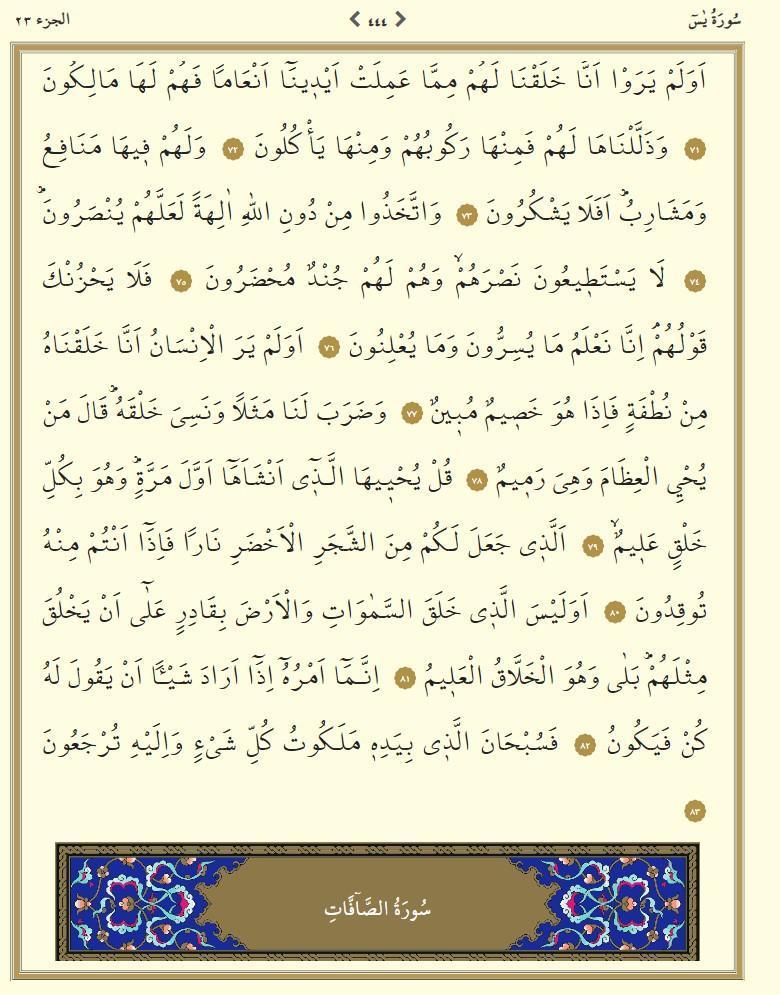 سُورَةُ يٰسٓ
٤٤٤
الجزء ٢٣
اَوَلَمْ يَرَوْا اَنَّا خَلَقْنَا لَهُمْ مِمَّا عَمِلَتْ اَيْدٖينَٓا اَنْعَامًا فَهُمْ لَهَا مَالِكُونَ
٧١ وَذَلَّلْنَاهَا لَهُمْ فَمِنْهَا رَكُوبُهُمْ وَمِنْهَا يَأْكُلُونَ ٧٢ وَلَهُمْ فٖيهَا مَنَافِعُ
وَمَشَارِبُۜ اَفَلَا يَشْكُرُونَ ٧٣ وَاتَّخَذُوا مِنْ دُونِ اللّٰهِ اٰلِهَةً لَعَلَّهُمْ يُنْصَرُونَۜ
٧٤ لَا يَسْتَطٖيعُونَ نَصْرَهُمْۙ وَهُمْ لَهُمْ جُنْدٌ مُحْضَرُونَ ٧٥ فَلَا يَحْزُنْكَ
قَوْلُهُمْۢ اِنَّا نَعْلَمُ مَا يُسِرُّونَ وَمَا يُعْلِنُونَ ٧٦ اَوَلَمْ يَرَ الْاِنْسَانُ اَنَّا خَلَقْنَاهُ
مِنْ نُطْفَةٍ فَاِذَا هُوَ خَصٖيمٌ مُبٖينٌ ٧٧ وَضَرَبَ لَنَا مَثَلًا وَنَسِىَ خَلْقَهُۜ قَالَ مَنْ
يُحْيِ الْعِظَامَ وَهِىَ رَمٖيمٌ ٧٨ قُلْ يُحْيٖيهَا الَّذٖٓى اَنْشَاَهَٓا اَوَّلَ مَرَّةٍۜ وَهُوَ بِكُلِّ
خَلْقٍ عَلٖيمٌۙ ٧٩ اَلَّذٖى جَعَلَ لَكُمْ مِنَ الشَّجَرِ الْاَخْضَرِ نَارًا فَاِذَٓا اَنْتُمْ مِنْهُ
تُوقِدُونَ ٨٠ اَوَلَيْسَ الَّذٖى خَلَقَ السَّمٰوَاتِ وَالْاَرْضَ بِقَادِرٍ عَلٰٓى اَنْ يَخْلُقَ
مِثْلَهُمْۜ بَلٰى وَهُوَ الْخَلَّاقُ الْعَلٖيمُ ٨١ اِنَّمَٓا اَمْرُهُٓ اِذَٓا اَرَادَ شَيْـًٔا اَنْ يَقُولَ لَهُ
كُنْ فَيَكُونُ ٨٢ فَسُبْحَانَ الَّذٖى بِيَدِهٖ مَلَكُوتُ كُلِّ شَىْءٍ وَاِلَيْهِ تُرْجَعُونَ
٨٣
سُورَةُ الصَّٓافَّاتِ